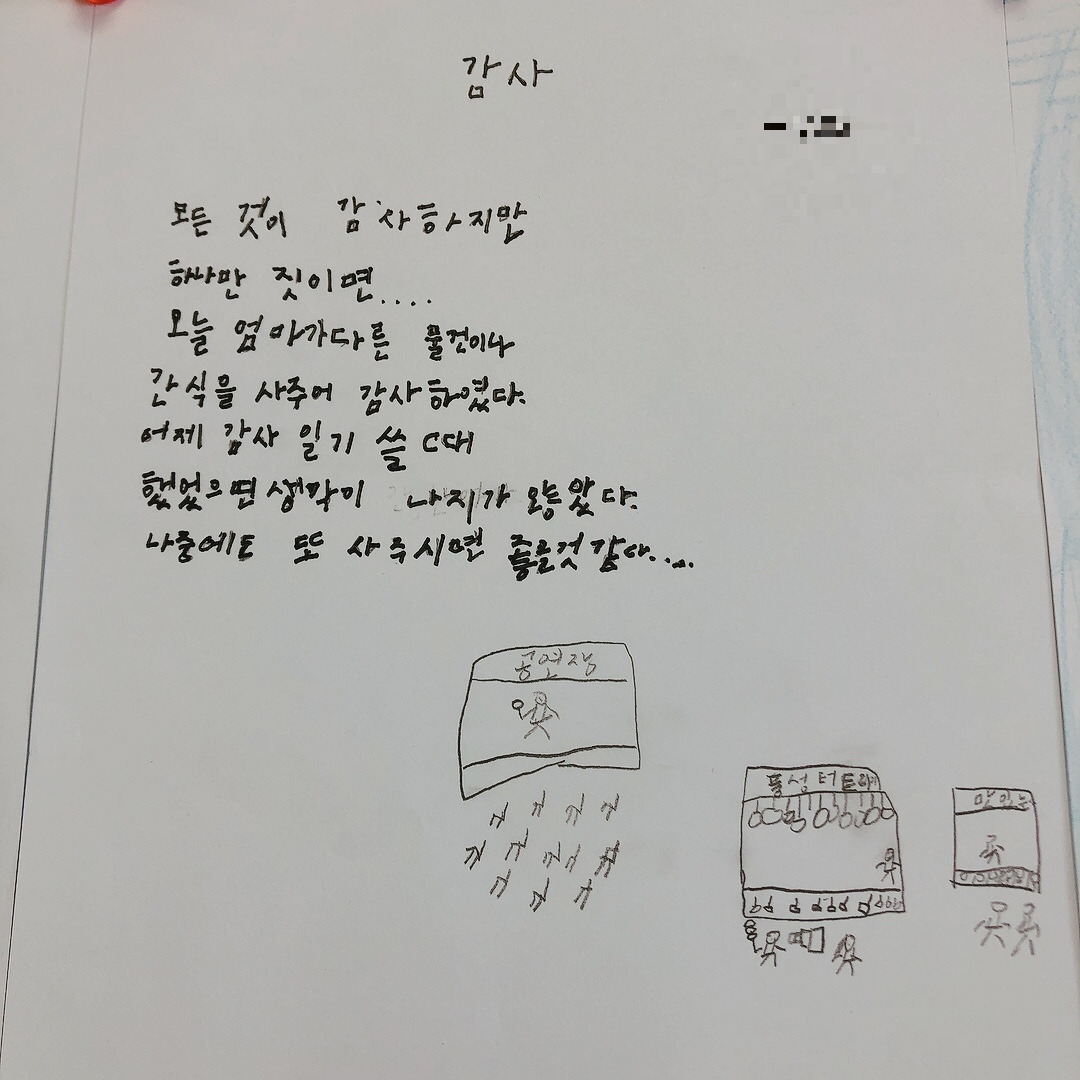 감사
모든 것이 감사하지만
하나만 짓이면....
오늘 엄마가다른 물건이나
간식을 사주어 감사하였다.
어제 감사 일기 쓸 때
했었으면 생각이 나지가 않았다.
나중에도 또 사주시면 좋을것 같다.....
공연장
풍선 터트리기
맛있는